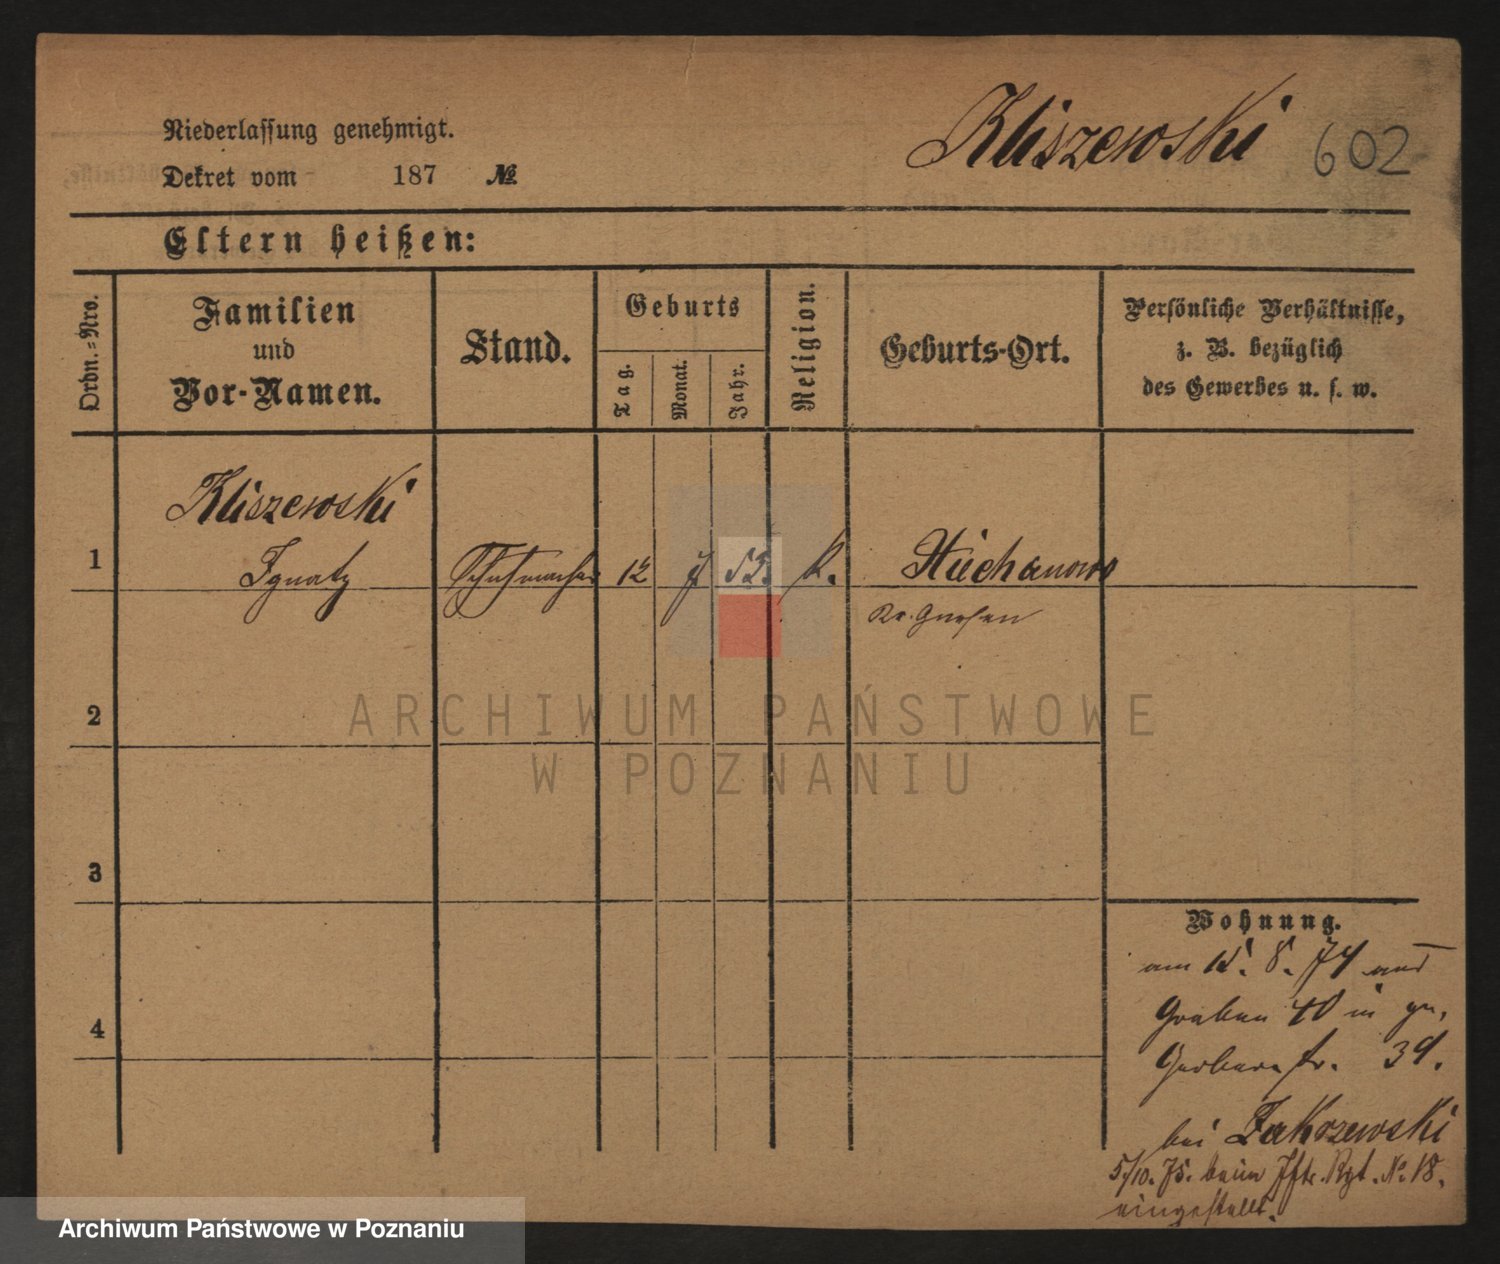 Kliszewski 602
Niederlassung genehmigt.
Dekret vom 187 №
Eltern heißen:
Ordn.=Nro.
Familien
und
Vor-Namen.
Stand.
Geburts
Tag.
Monat.
Jahr.
Religion.
Geburts-Ort.
Persönliche Verhältnisse,
z. B. bezüglich
des Gewerbes u. s. w.
Kliszewski
1 Ignatz Schuhmacher 12 7 52. k.
Kr. Gnesen
2
3
4
Wohnung.
am 15. 8. 74 aus
Graben 10 in
Gerberstr. 39.
bei Zakrzewski
5/10. 75. beim Iftr. Rgt. No. 18.
eingestellt.
ARCHIWUM PAŃSTWOWE
W POZNANIU
Archiwum Państwowe w Poznaniu